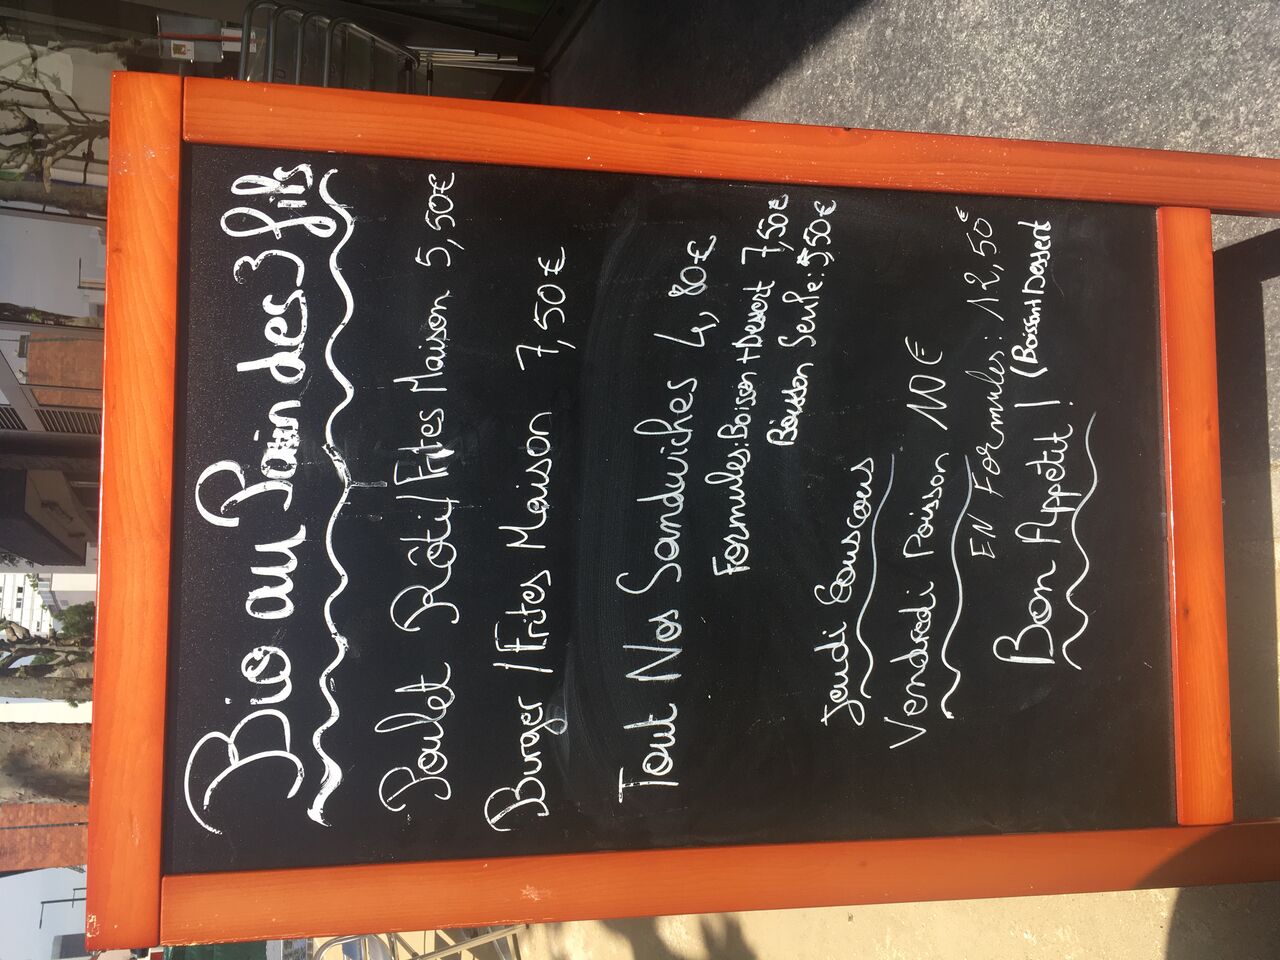 Bio au Pain des 3 fils
Poulet Rôti/Frites Maison 5,50€
Burger /Frites Maison 7,50€
Tout Nos Sandwiches 4,80€
Formules: Boisson + Dessert 7,50€
Boisson Seule: 5,50€
Jeudi Couscous
Vendredi Poisson 10€
EN Formules: 12,50€
(Boisson+Dessert
Bon Appetit!